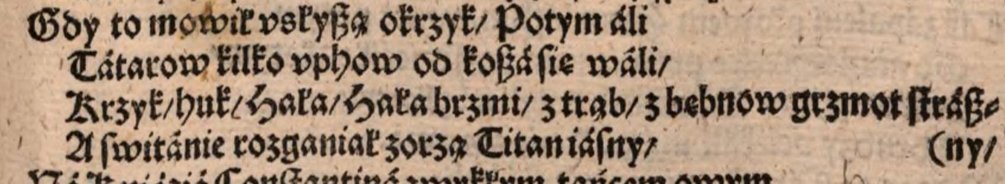 Gdy to mowił vsłyszą okrzyk/ Potym áli
Tátarow kilko vphow od koszá sie wáli/
Krzyk/ huk/ Háłá/ Háłá brzmi/ z trąb/ z bębnow grzmot strász⸗
A switánie rozganiał zorzą Titan iásny/ (ny/